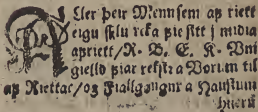 Aller þeir Mennsem ap riett
eigu sklu reka þie sitt j midia
apriett / R. B. E. K. Vm
gielld þiar rekstr a Vorum til
ap Riettar / og Fiallgaungur a Haustum